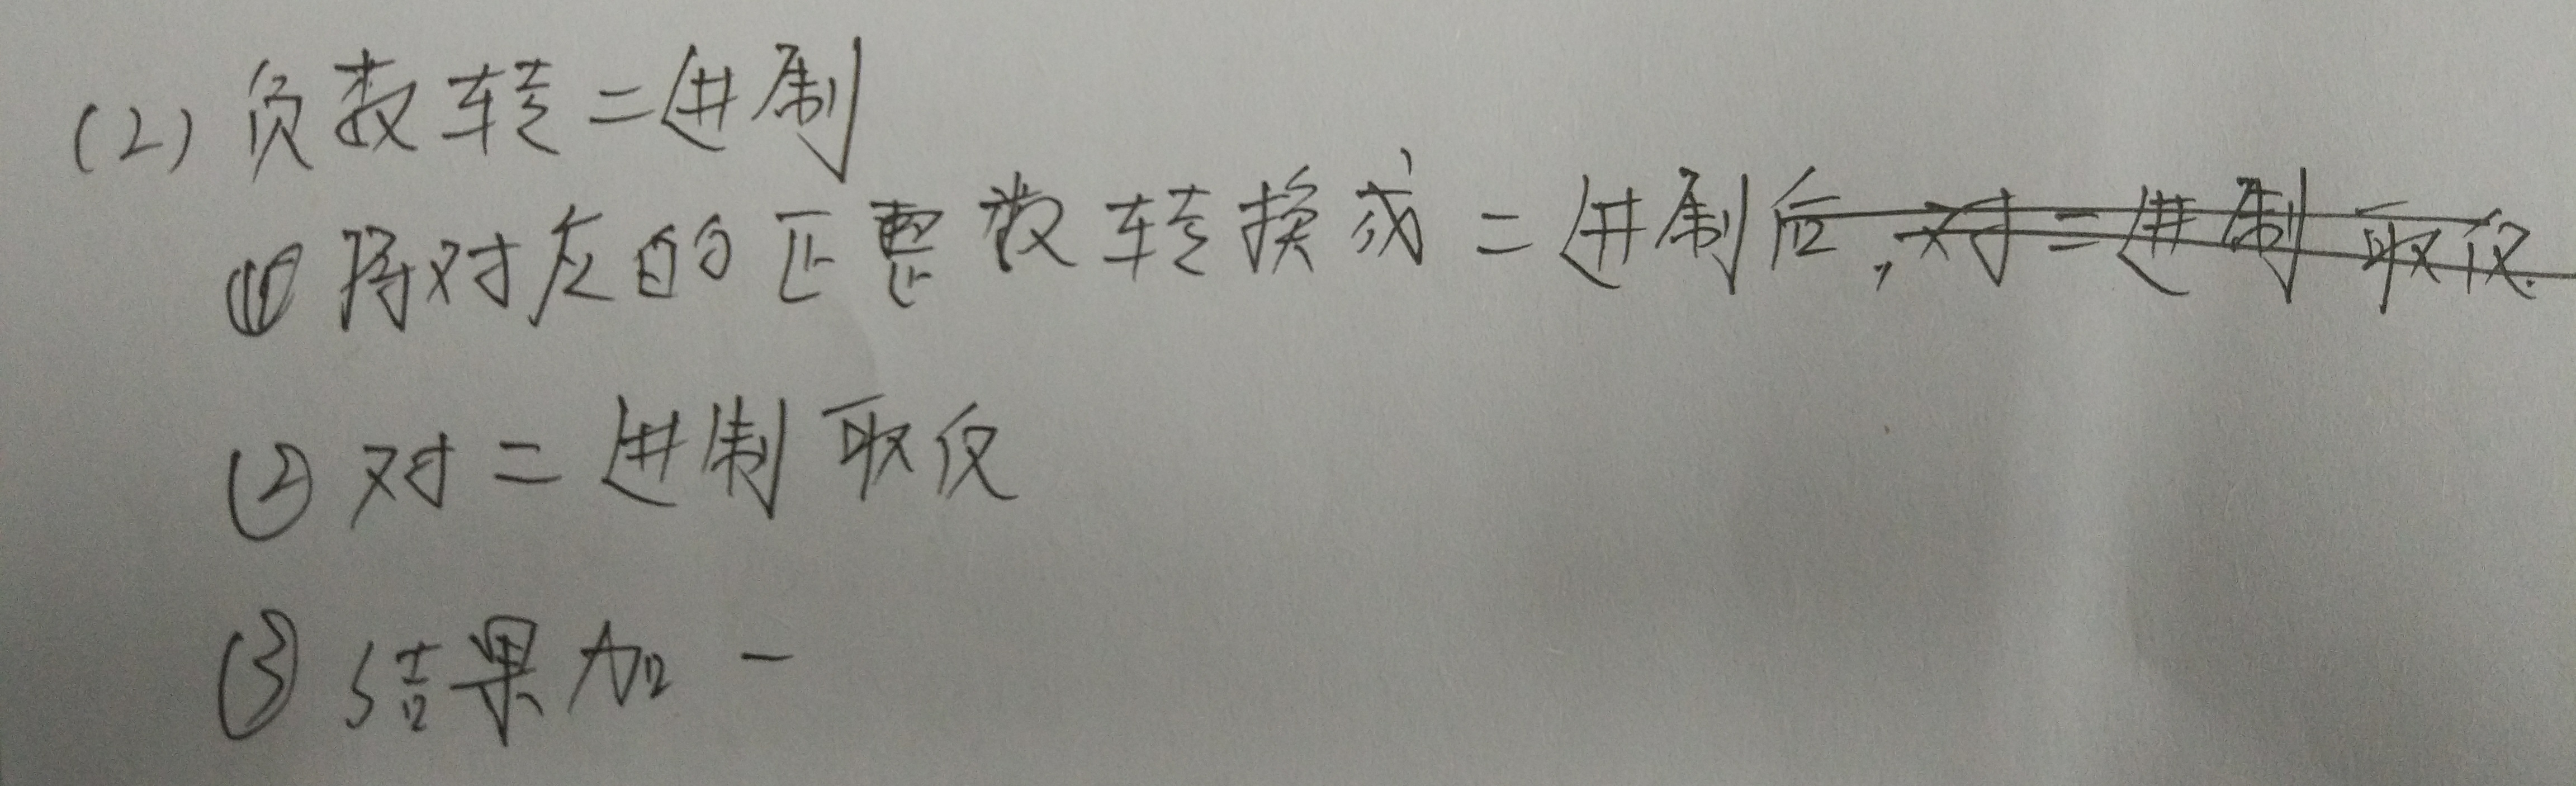 (2) 负数转二进制
① 将对应的正整数转换成二进制后,对二进制取反.
② 对二进制取反
③ 结果加一